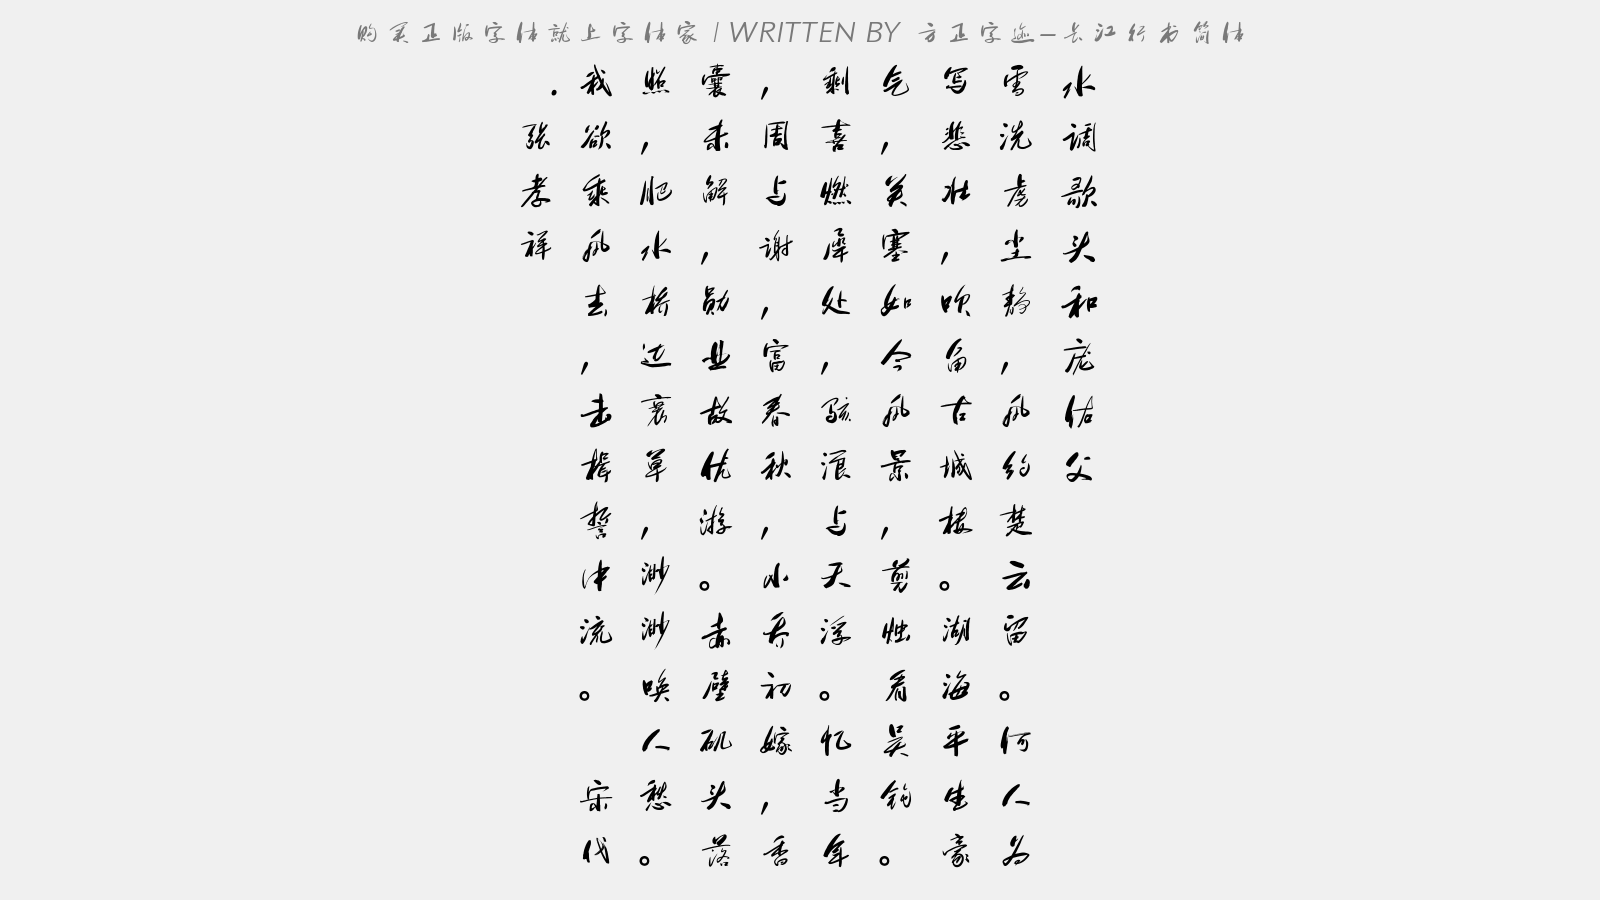 购买正版字体就上字体家 | WRITTEN BY 方正字迹—长江行书简体
水调歌头和庞佑父
雪洗虏尘静，风约楚云留。何人为
写悲壮，吹角古城楼。湖海平生豪
气，关塞如今风景，剪烛看吴钩。
剩喜燃犀处，骇浪与天浮。忆当年
，周与谢，富春秋，小乔初嫁，香
囊未解，勋业故优游。赤壁矶头落
照，肥水桥边衰草，渺渺唤人愁。
我欲乘风去，击楫誓中流。 宋代
.张孝祥